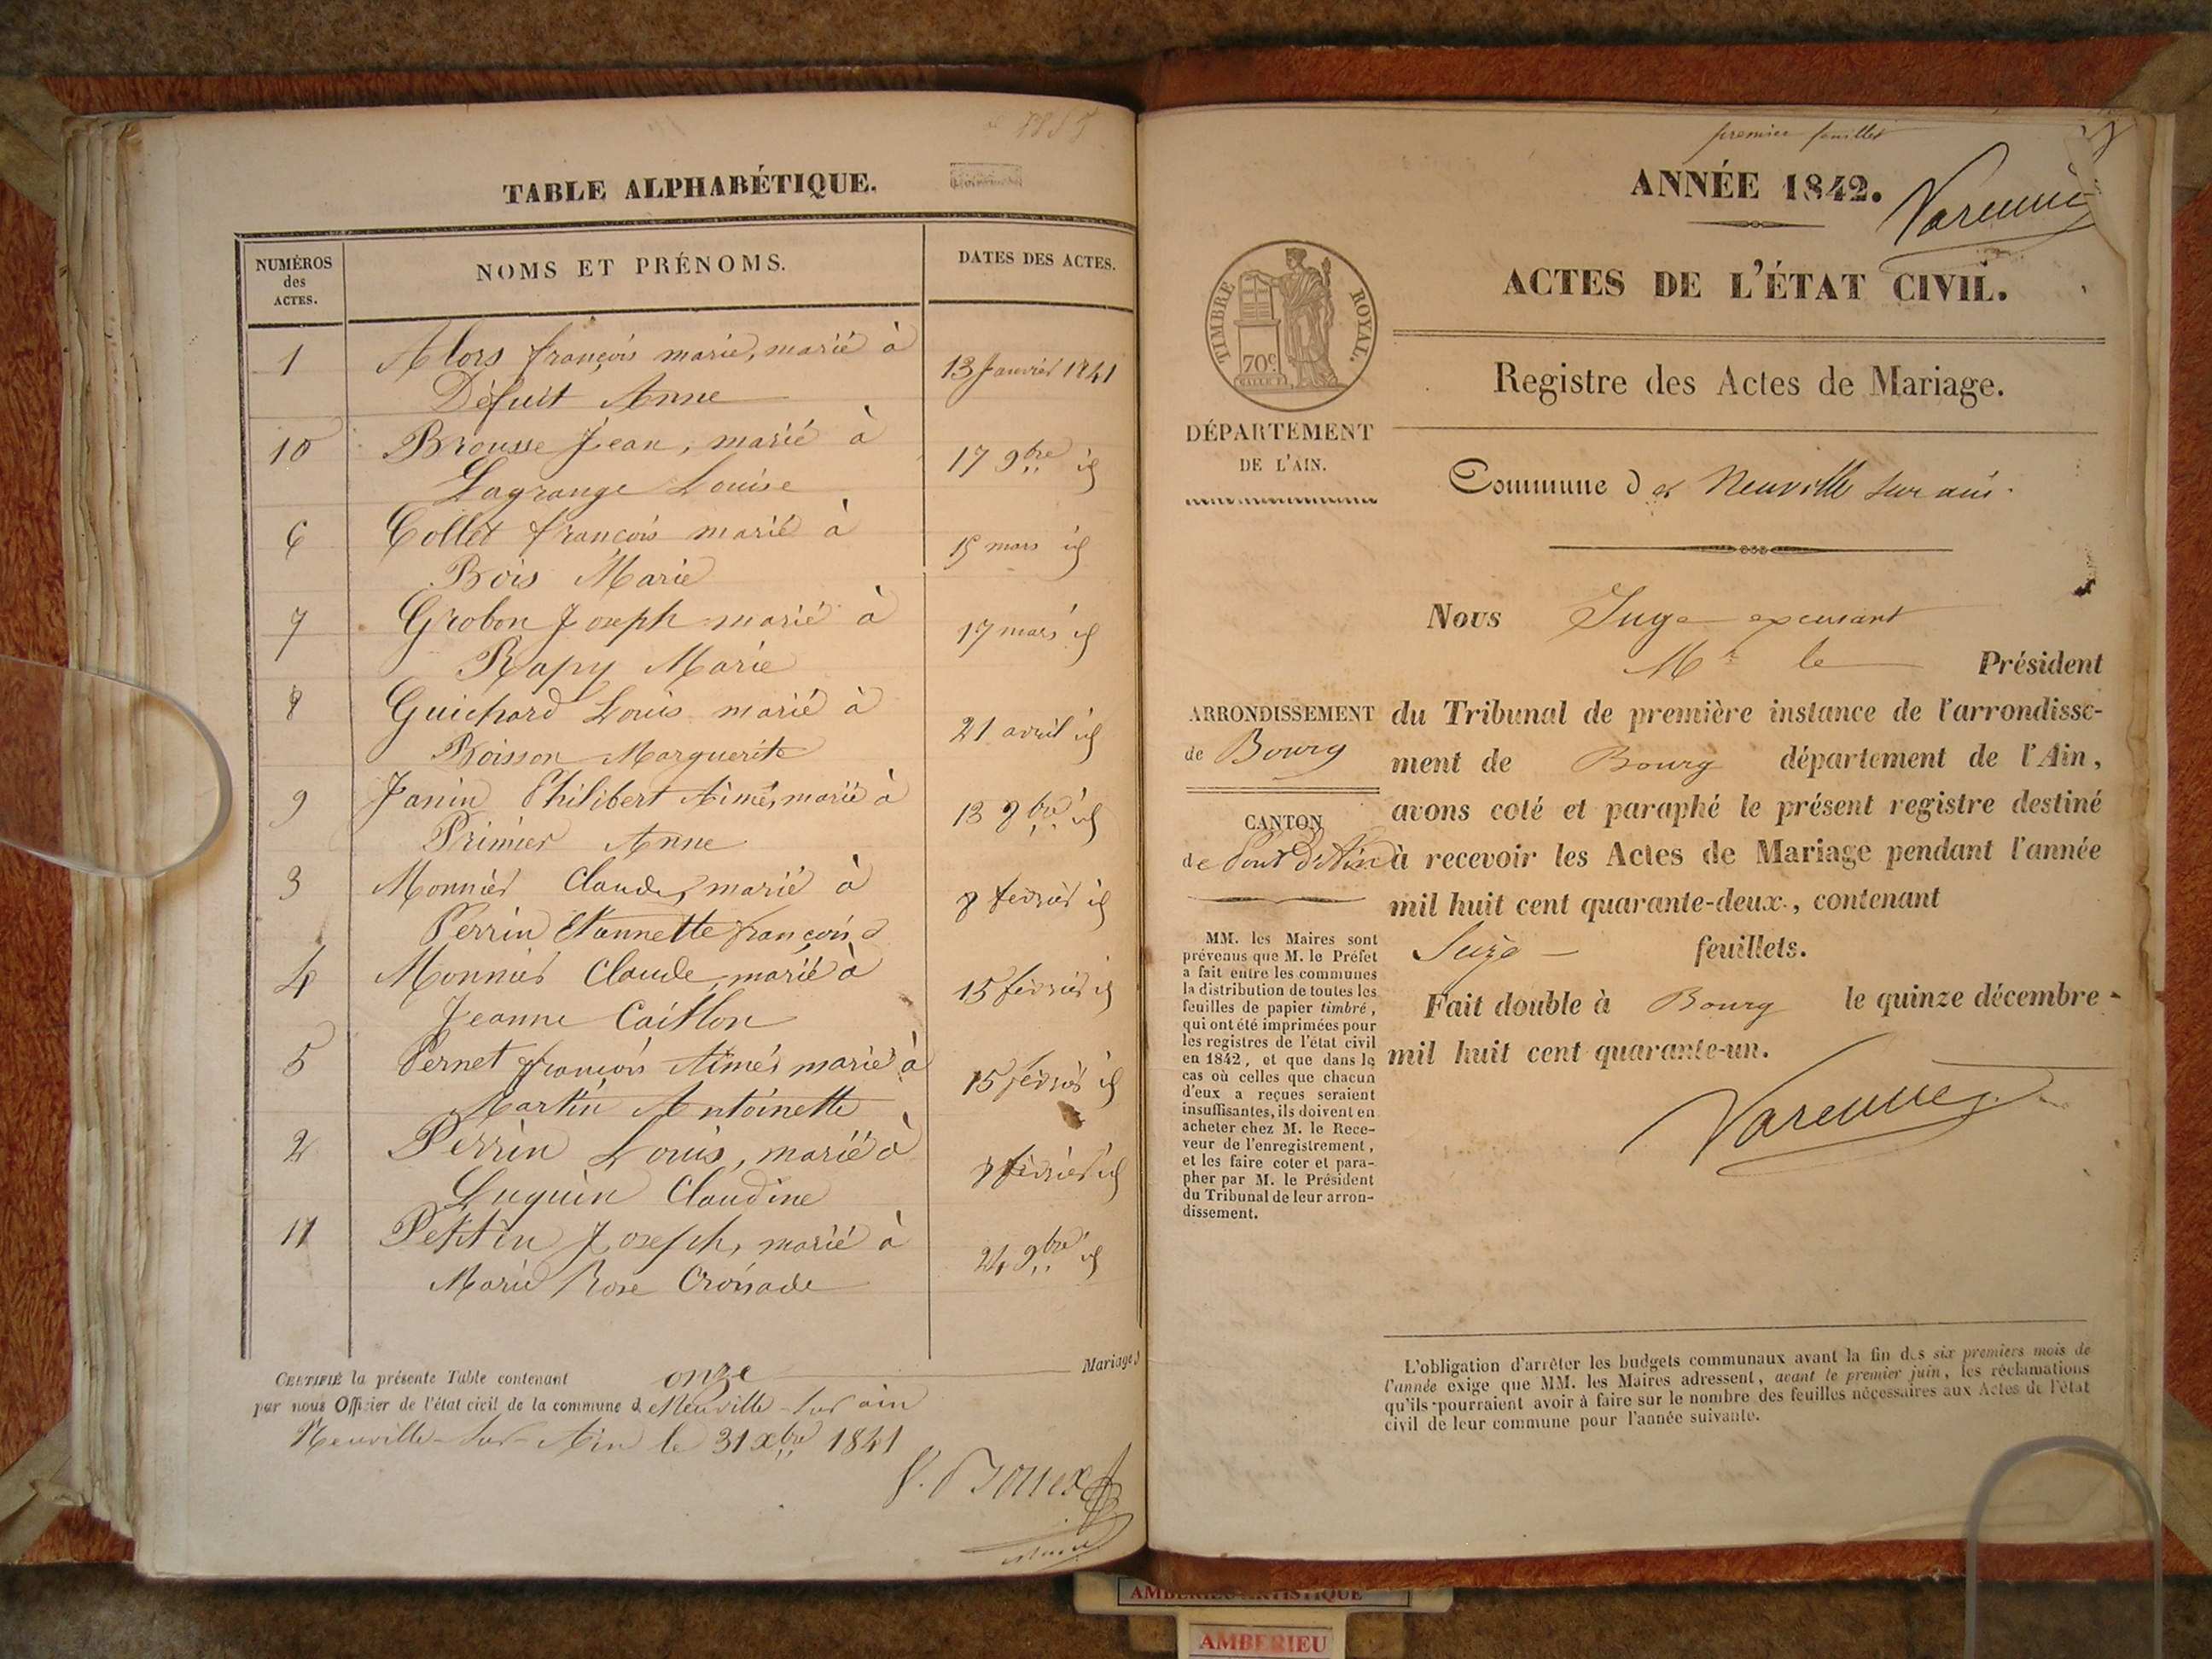 TABLE ALPHABÉTIQUE.
NUMÉROS
des
ACTES.
NOMS ET PRÉNOMS.
DATES DES ACTES.
1 Alors françois marie, marié à 13 Janvier 1841
Défuit Anne
10 Brousse Jean, marié à 17 9bre id
Lagrange Louise
6 Collet françois marié à mars id
Bois Marie
7 Grobon Joseph marié à 17 mars id
Rapy Marie
8 Guichard Louis marié à 21 avril id
Boisson Marguerite
9 Janin Philibert Aimé, marié à 13 8bre id
Primier Anne
3 Monnier Claude, marié à 8 février id
Perrin françoise
4 Monnier Claude marié à 15 février id
Jeanne Caillon
5 Pernet françois Aimé, marié à 15 février id
Martin Antoinette
2 Perrin Louis, marié à février id
Luquin Claudine
11 Petitin Joseph, marié à 24 9bre id
Marie Rose Croisade
CERTIFIÉ la présente Table contenant onze Mariages
par nous Officier de l'état civil de la commune de Neuville-sur-ain
Neuville-sur-Ain le 31 Xbre 1841
premier feuillet
ANNÉE 1842.
Varenne
ACTES DE L'ÉTAT CIVIL.
TIMBRE ROYAL.
70c
Registre des Actes de Mariage.
DÉPARTEMENT
DE L'AIN.
Commune de Neuville sur ain.
Nous Juge excusant
Mr le Président
ARRONDISSEMENT
de Bourg
CANTON
de Pont d'Ain
du Tribunal de première instance de l'arrondisse-
ment de Bourg département de l'Ain,
avons coté et paraphé le présent registre destiné
à recevoir les Actes de Mariage pendant l'année
mil huit cent quarante-deux, contenant
Seize feuillets.
Fait double à Bourg le quinze décembre
mil huit cent quarante-un.
Varenne
MM. les Maires sont
prévenus que M. le Préfet
a fait entre les communes
la distribution de toutes les
feuilles de papier timbré,
qui ont été imprimées pour
les registres de l'état civil
en 1842, et que dans le
cas où celles que chacun
d'eux a reçues seraient
insuffisantes, ils doivent en
acheter chez M. le Rece-
veur de l'enregistrement,
et les faire coter et para-
pher par M. le Président
du Tribunal de leur arron-
dissement.
L'obligation d'arrêter les budgets communaux avant la fin des six premiers mois de
l'année exige que MM. les Maires adressent, avant le premier juin, les réclamations
qu'ils pourraient avoir à faire sur le nombre des feuilles nécessaires aux Actes de l'état
civil de leur commune pour l'année suivante.
AMBERIEU ARTISTIQUE
AMBERIEU